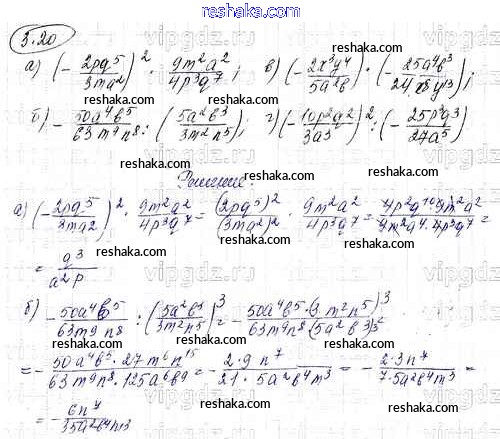 5.20
а) (-2pq^5/3ma^2)^2 · 9m^2a^2/4p^3q^7; в) (-2x^3y^4/5a^2b) · (-25a^4b^3/24x^8y^13);
б) -50a^4b^5/63m^9n^8 : (5a^2b^3/3m^2n^5)^3; г) (-10p^2q^2/3a^3)^2 : (-25p^3q^3/27a^5)
Решение:
а) (-2pq^5/3ma^2)^2 · 9m^2a^2/4p^3q^7 = (2pq^5)^2/(3ma^2)^2 · 9m^2a^2/4p^3q^7 = 4p^2q^10·9m^2a^2/9m^2a^4·4p^3q^7 =
= q^3/a^2p
б) -50a^4b^5/63m^9n^8 : (5a^2b^3/3m^2n^5)^3 = -50a^4b^5·(3m^2n^5)^3/63m^9n^8·(5a^2b^3)^3 =
= -50a^4b^5·27m^6n^15/63m^9n^8·125a^6b^9 = -2·9n^7/21·5a^2b^4m^3 = -2·3n^7/7·5a^2b^4m^3 =
= -6n^7/35a^2b^4m^3